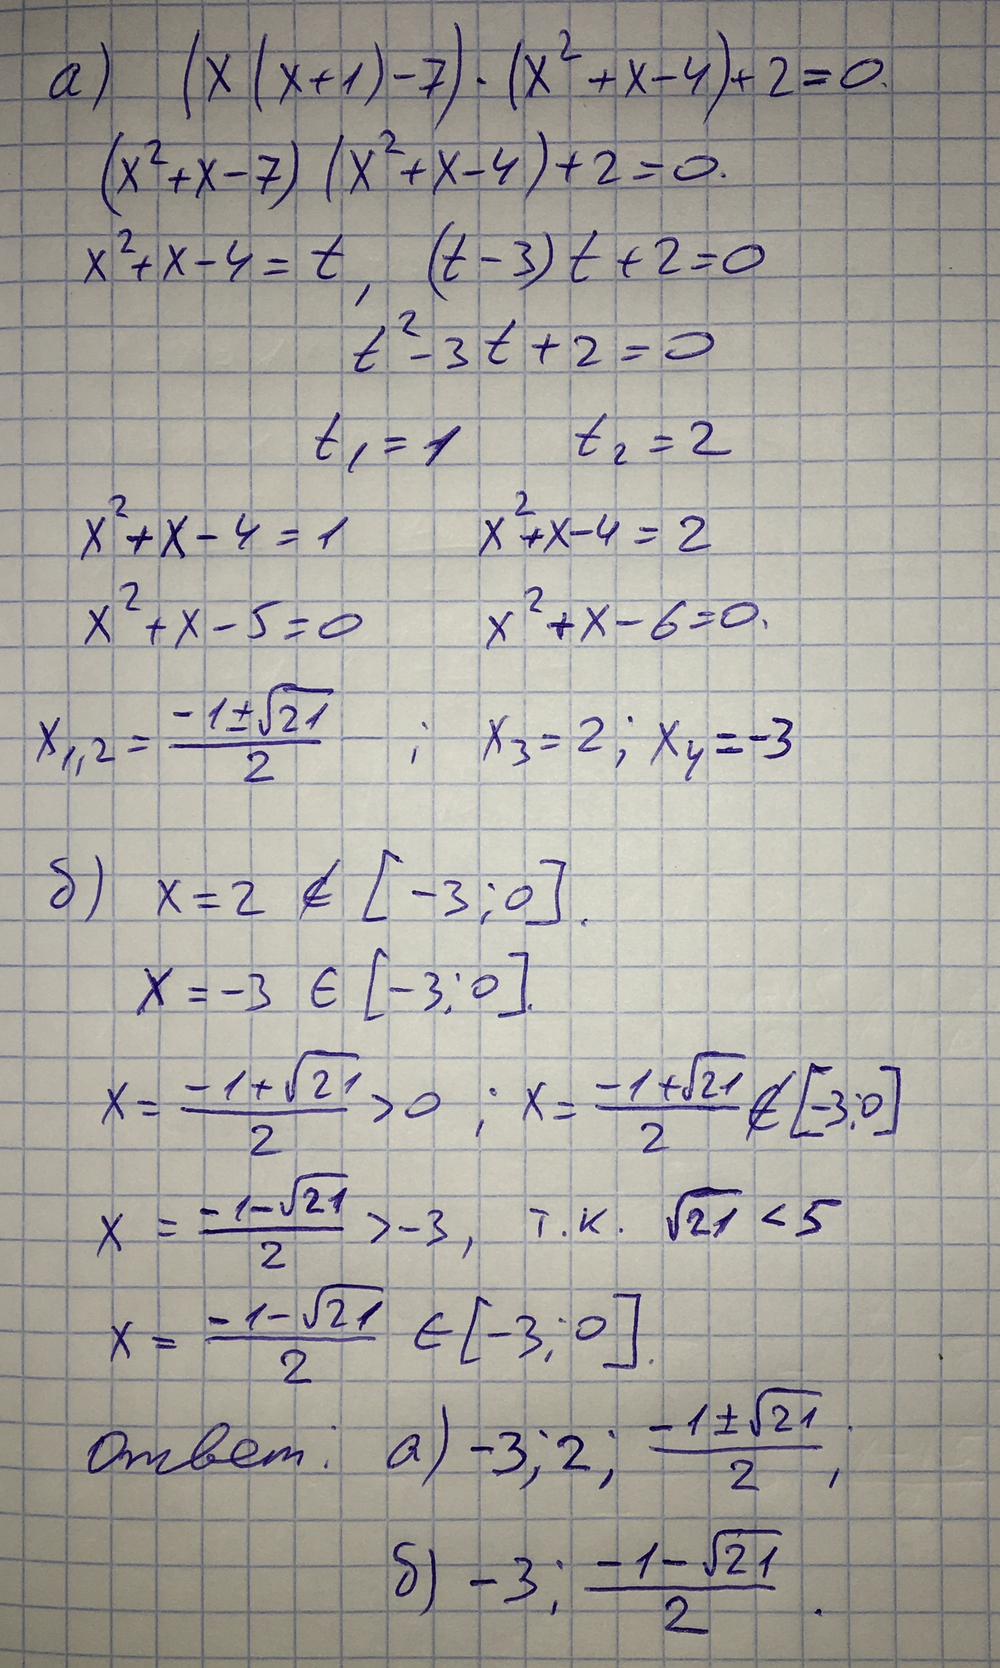 а) (x(x+1)-7)·(x²+x-4)+2=0.
(x²+x-7)(x²+x-4)+2=0.
x²+x-4=t, (t-3)t+2=0
t²-3t+2=0
t₁=1 t₂=2
x²+x-4=1 x²+x-4=2
x²+x-5=0 x²+x-6=0.
x₁,₂=(-1±√21)/2 ; x₃=2; x₄=-3
б) x=2 ∉ [-3;0].
x=-3 ∈ [-3;0].
x=(-1+√21)/2>0 ; x=(-1+√21)/2 ∉ [-3;0]
x=(-1-√21)/2>-3, т.к. √21<5
x=(-1-√21)/2 ∈ [-3;0].
Ответ: а) -3; 2; (-1±√21)/2;
б) -3; (-1-√21)/2.